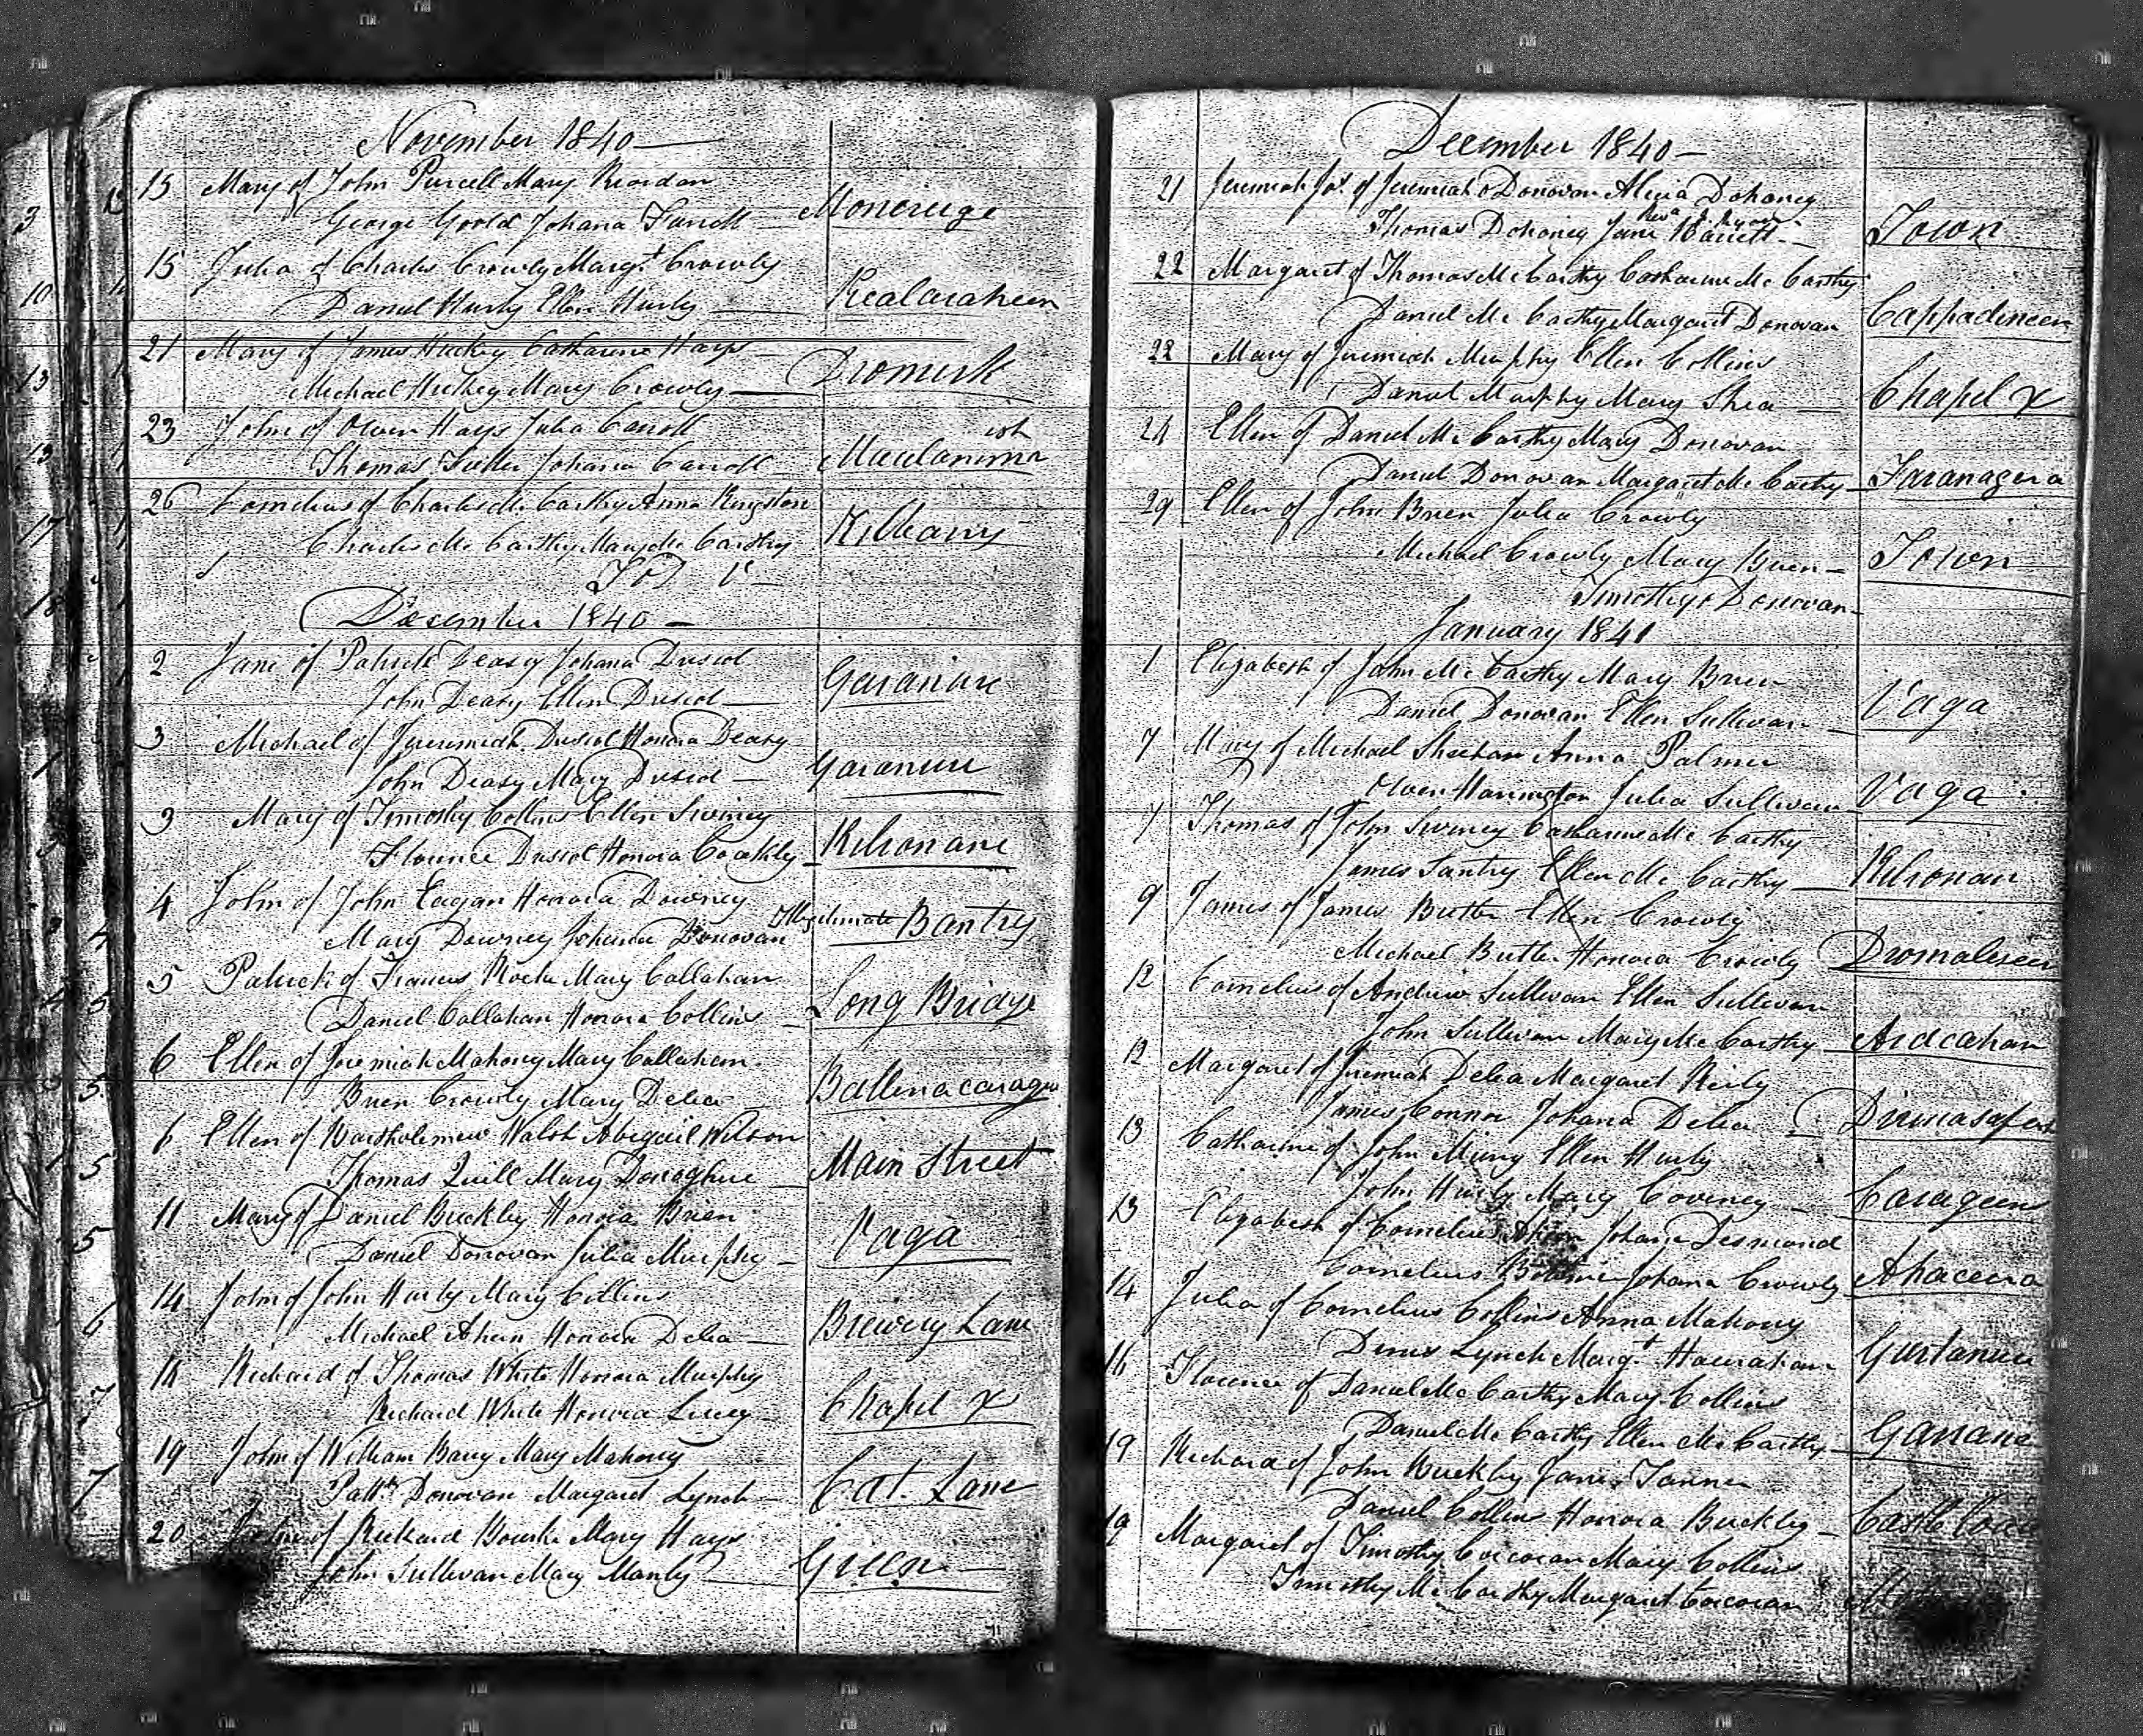 November 1840
15 Mary of John Purcell Mary Reardan
George Goold Johana Farrell Moneruge
15 Julia of Charles Crowly Margt Crowly
Daniel Hurly Ellen Hurly Kealaraheen
21 Mary of James Hickey Catharine Hays
Michael Hickey Mary Crowly Dromirk
23 John of Owen Hays Julia Carroll
Thomas Johana Carroll
26 Cornelius of Charles Mc Carthy Anna Kingston
Charles Mc Carthy Mary Mc Carthy Kilbarry
December 1840
2 Jane of Patrick Deasy Johana Driscol
John Deasy Ellen Driscol Garanure
3 Michael of Jeremiah Driscol Honora Deasy
John Deasy Mary Driscol Garanure
3 Mary of Timothy Collins Ellen Swiney
Florence Driscol Honora Coakley Kilronane
4 John of John Eagan Honora Downey
Mary Downey Johana Donovan Illegitimate Bantry
5 Patrick of Francis Roche Mary Callahan
Daniel Callahan Honora Collins Long Bridge
6 Ellen of Jeremiah Mahony Mary Callahan
Brien Crowly Mary Delea Ballinacarage
6 Ellen of Bartholimew Walsh Abigail Wilson
Thomas Quill Mary Donoghue Main Street
11 Mary of Daniel Buckley Honora Brien
Daniel Donovan Julia Murphy Vaga
14 John of John Hurly Mary Collins
Michael Ahern Honora Delea Brewery Lane
18 Richard of Thomas White Honora Murphy
Richard White Honora Lucey Chapel X
19 John of William Barry Mary Mahony
Patk Donovan Margaret Lynch Cat. Lane
20 of Richard Bourke Mary Hays
John Sullivan Mary Manly Green
December 1840
21 Jeremiah Jos. of Jeremiah O Donovan Alicia Dohoney
Thomas Dohoney Jane Barrett Town
22 Margaret of Thomas Mc Carthy Catharine Mc Carthy
Daniel Mc Carthy Margaret Donovan Cappadineen
22 Mary of Jeremiah Murphy Ellen Collins
Daniel Murphy Mary Shea Chapel X
24 Ellen of Daniel Mc Carthy Mary Donovan
Daniel Donovan Margaret Mc Carthy Faranagera
29 Ellen of John Brien Julia Crowly
Michael Crowly Mary Brien Town
Timothy O Donovan
January 1841
1 Elizabeth of John Mc Carthy Mary Brien
Daniel Donovan Ellen Sullivan Vaga
7 Mary of Michael Sheehan Anna Palmer
Owen Harrington Julia Sullivan Vaga
7 Thomas of John Swiney Catharine Mc Carthy
James Santry Ellen Mc Carthy Kilronan
9 James of James Butler Ellen Crowly
Michael Butler Honora Crowly Dromaleen
12 Cornelius of Andrew Sullivan Ellen Sullivan
John Sullivan Mary Mc Carthy Ardcahan
12 Margaret of Jeremiah Delea Margaret Reily
James Connor Johana Delea
13 Catharine of John Ellen Hurly
John Hurly Mary Coveney Carageen
13 Elizabeth of Cornelius Johana Desmond
Cornelius Johana Crowly Ahacera
14 Julia of Cornelius Collins Anna Mahony
Denis Lynch Margt Hourahan Gurtanure
16 Florence of Daniel Mc Carthy Mary Collins
Daniel Mc Carthy Ellen Mc Carthy Garrane
19 Richard of John Buckley Jane Tanner
Daniel Collins Honora Buckley Castle
19 Margaret of Timothy Corcoran Mary Collins
Timothy Mc Carthy Margaret Corcoran